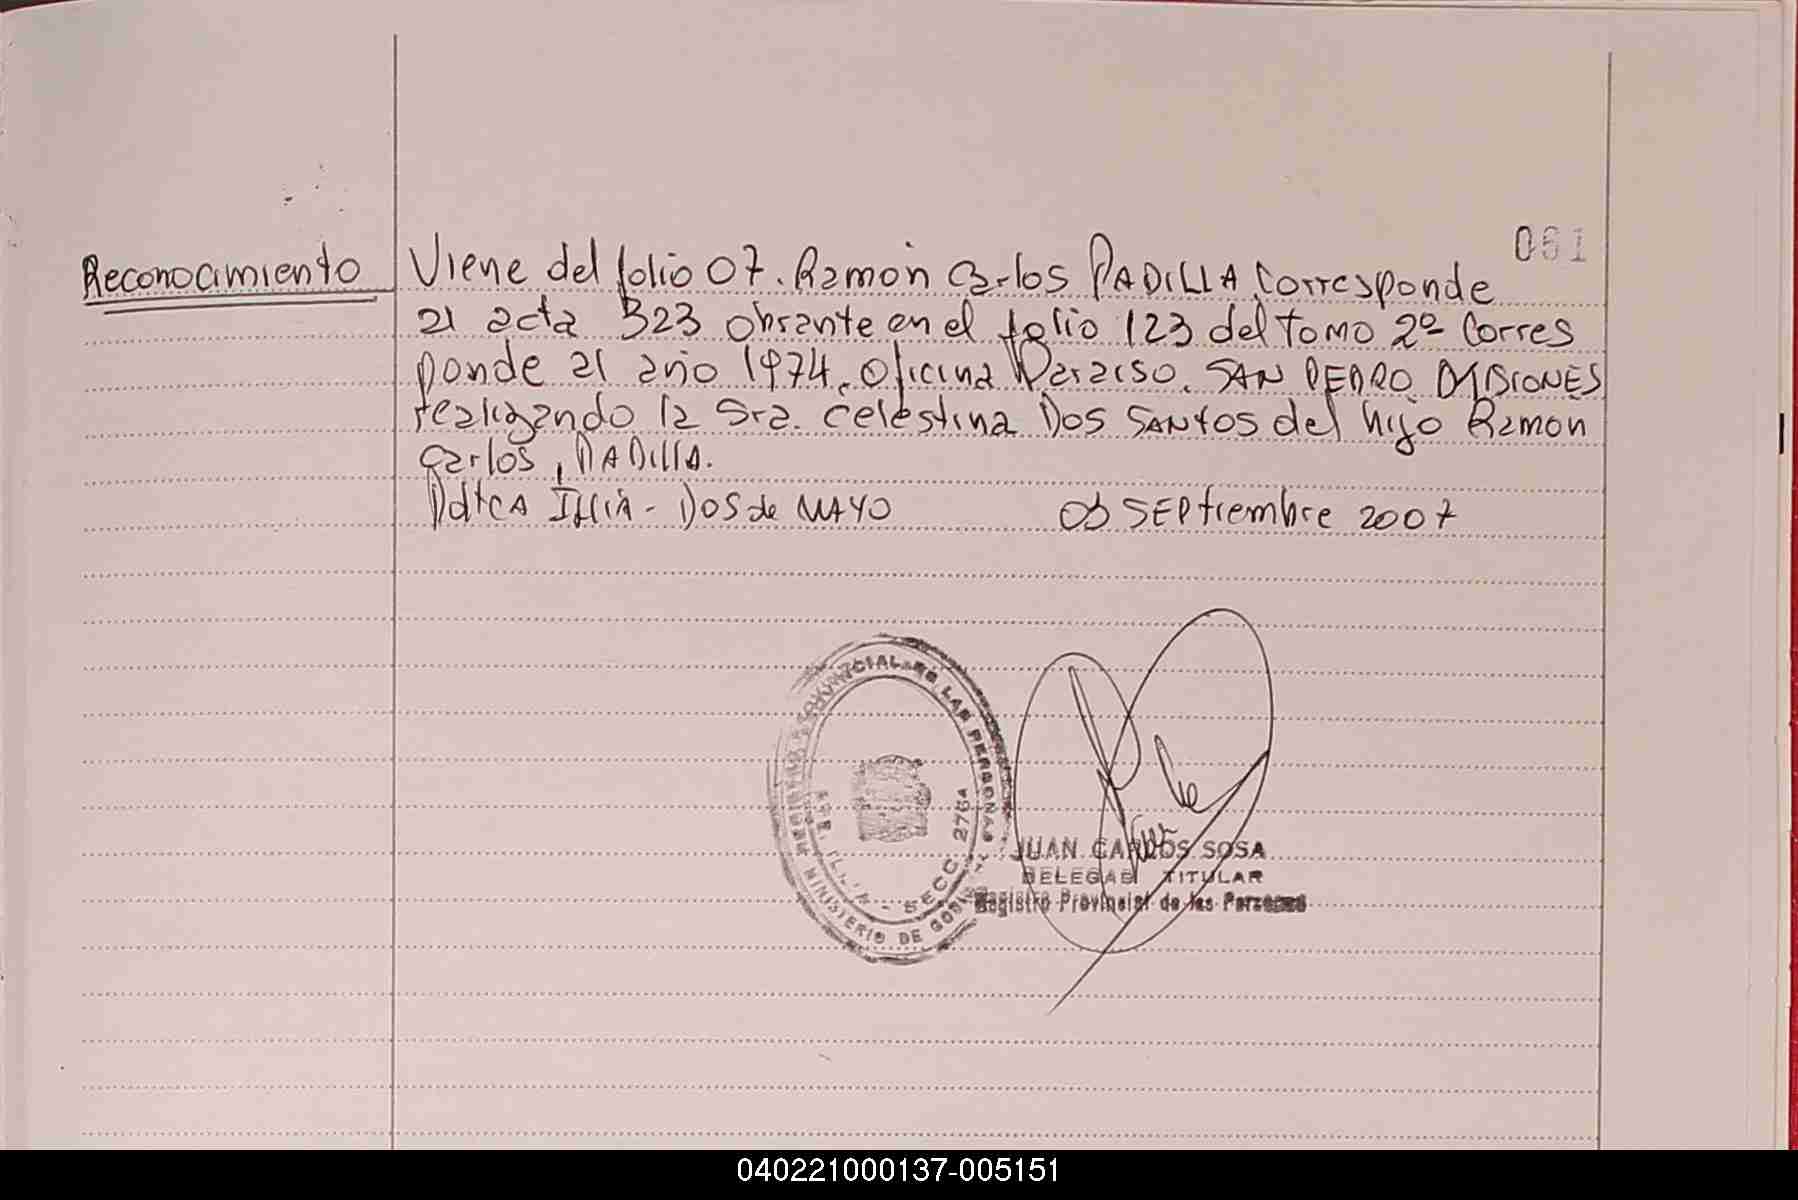 061
Reconocimiento
Viene del folio 07. Ramón Carlos PADILLA Corresponde
al acta 323 obrante en el folio 123 del tomo 2º Corres
ponde al año 1974. Oficina Paraiso. SAN PEDRO MISIONES
realizando la Sra. Celestina Dos SANTOS del hijo Ramon
Carlos, PADILLA.
Pdte A Illia - Dos de MAYO
SEPtiembre 2007
PROVINCIAL DE LAS PERSONAS
MINISTERIO DE
SECC. 276A
JUAN CARLOS SOSA
DELEGAD TITULAR
Registro Provincial de las Personas
040221000137-005151